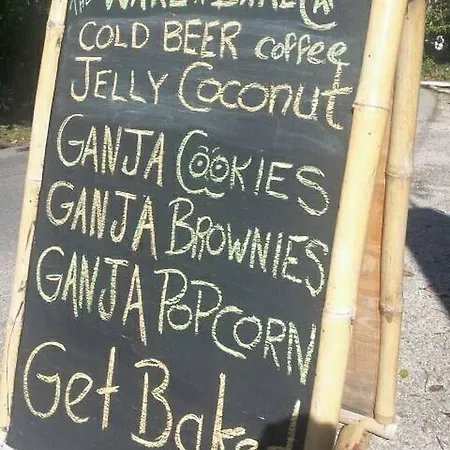 THE WAKE N BAKE Ca
COLD BEER coffee
JELLY Coconut
GANJA COOKIES
GANJA BROWNIES
GANJA POPCORN
Get Baked!